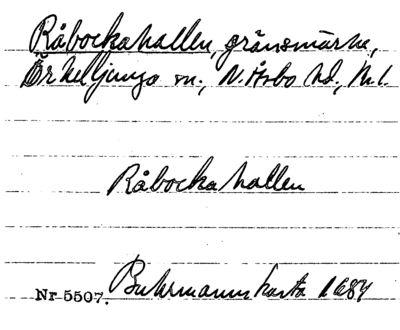 Råbockahallen, gränsmärke,
Örkelljunga sn., N. Åsbo hd., M. l.
Råbockahallen
Nr 5507. Buhrmanns karta 1684